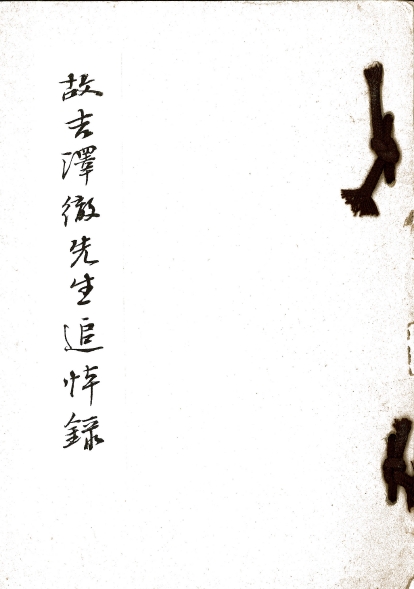 故吉澤徹先生追悼錄